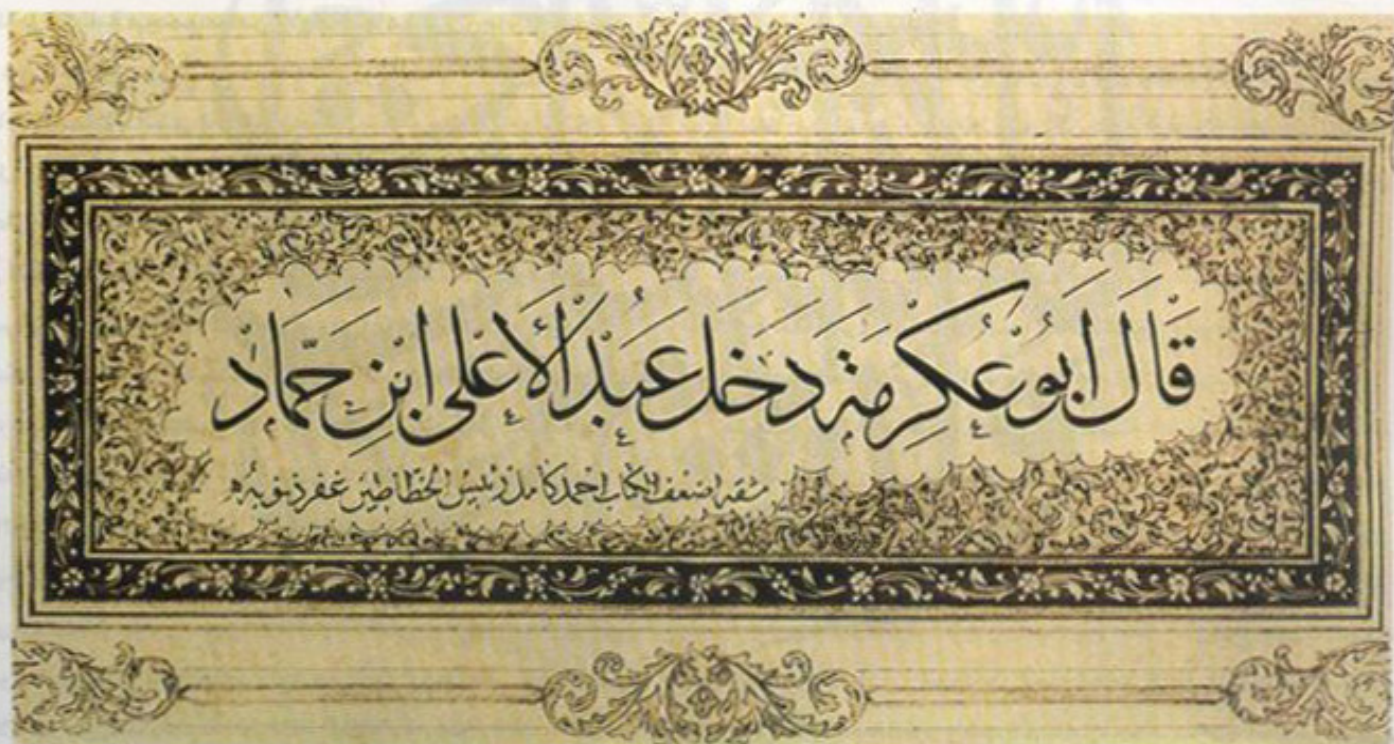 قَالَ اَبُو عِكْرِمَة دَخَلَ عَبْدُ الْأَعْلٰى ابْنِ حَمَّاد
مشقه اضعف الكتاب احمد كامل رئيس الخطاطين غفر ذنوبه